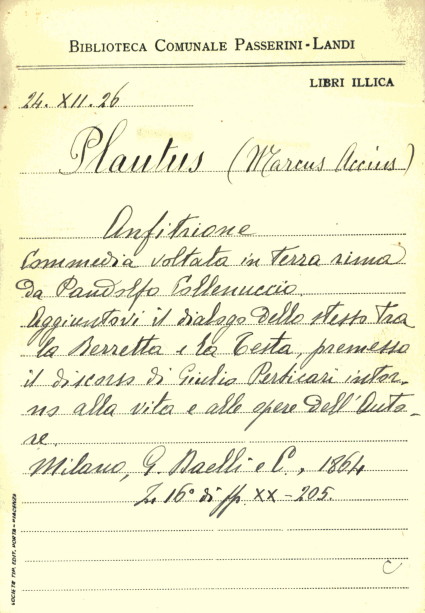 BIBLIOTECA COMUNALE PASSERINI-LANDI
LIBRI ILLICA
24. XII. 26
Plautus (Marcus Accius)
Anfitrione
Commedia voltata in terza rima
da Pandolfo Collenuccio
Aggiuntovi il dialogo dello stesso tra
la Berretta e la Testa, premesso
il discorso di Giulio Perticari intor-
no alla vita e alle opere dell'Auto-
re.
Milano, G. Daelli e C., 1864
In 16° di pp. XX-205.
C
SOCIETÀ TIP. EDIT. PORTA-PIACENZA